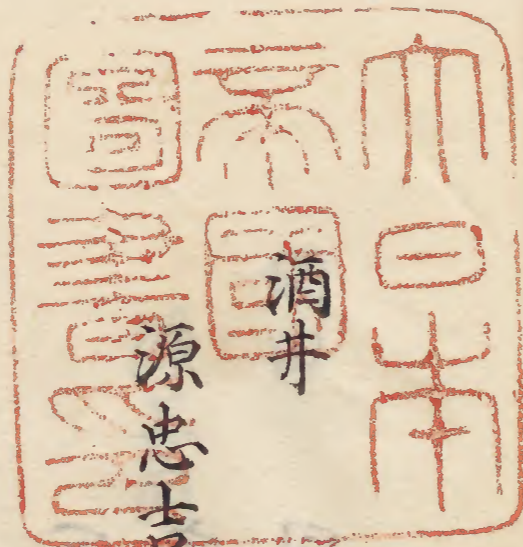 大日本
帝國
圖書印
酒井
源忠吉